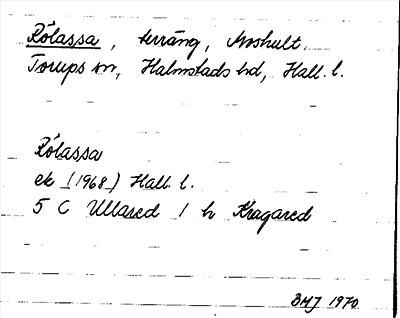 Rölassa, terräng, Moshult,
Torups sn, Halmstads hd, Hall. l.
Rölassa
ek (1968) Hall l.
5 C Ullared 1 h Kragared
BHJ 1970